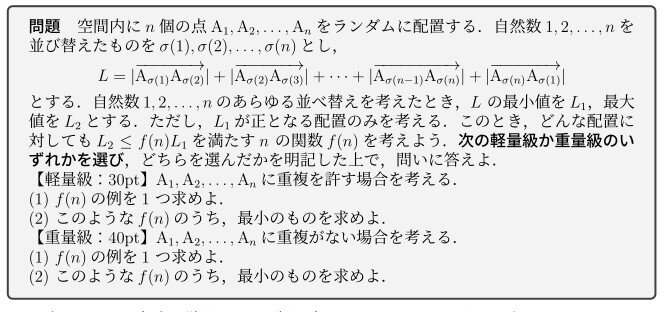 問題 空間内に n 個の点 A₁, A₂, ..., Aₙ をランダムに配置する．自然数 1, 2, ..., n を
並び替えたものを σ(1), σ(2), ..., σ(n) とし，
L = |$\overrightarrow{\mathrm{A}_{\sigma(1)}\mathrm{A}_{\sigma(2)}}$| + |$\overrightarrow{\mathrm{A}_{\sigma(2)}\mathrm{A}_{\sigma(3)}}$| + ⋯ + |$\overrightarrow{\mathrm{A}_{\sigma(n-1)}\mathrm{A}_{\sigma(n)}}$| + |$\overrightarrow{\mathrm{A}_{\sigma(n)}\mathrm{A}_{\sigma(1)}}$|
とする．自然数 1, 2, ..., n のあらゆる並べ替えを考えたとき，L の最小値を L₁，最大
値を L₂ とする．ただし，L₁ が正となる配置のみを考える．このとき，どんな配置に
対しても L₂ ≤ f(n)L₁ を満たす n の関数 f(n) を考えよう．次の軽量級か重量級のい
ずれかを選び，どちらを選んだかを明記した上で，問いに答えよ．
【軽量級：30pt】A₁, A₂, ..., Aₙ に重複を許す場合を考える．
(1) f(n) の例を 1 つ求めよ．
(2) このような f(n) のうち，最小のものを求めよ．
【重量級：40pt】A₁, A₂, ..., Aₙ に重複がない場合を考える．
(1) f(n) の例を 1 つ求めよ．
(2) このような f(n) のうち，最小のものを求めよ．